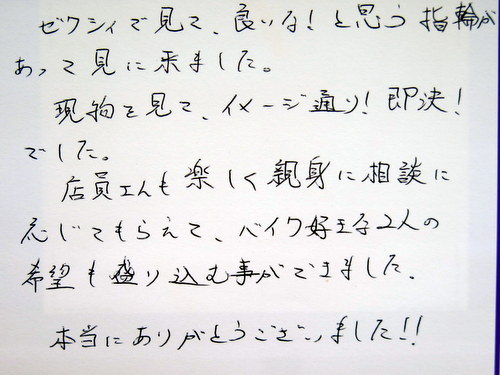 ゼクシィで見て、良いな！と思う指輪が
あって見に来ました。
現物を見て、イメージ通り！即決！
でした。
店員さんも楽しく親身に相談に
応じてもらえて、バイク好きな2人の
希望も盛り込む事ができました。
本当にありがとうございました!!